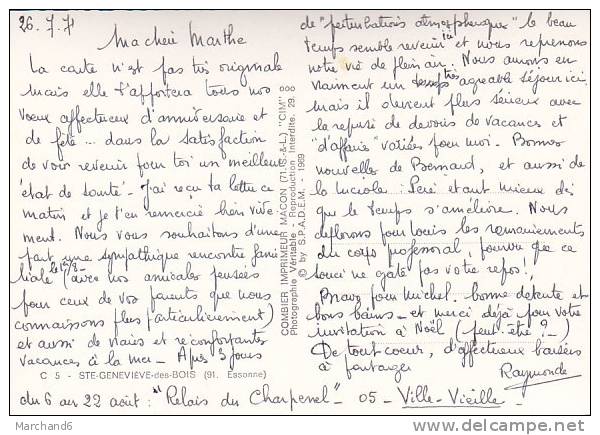 26.7.71
Ma chère Marthe
La carte n'est pas très originale
mais elle t'apportera tous nos
voeux affectueux d'anniversaire et
de fête... dans la satisfaction
de voir revenir pour toi un meilleur
état de santé - J'ai reçu ta lettre ce
matin et je t'en remercie bien vive
ment. Nous vous souhaitons d'une
part une sympathique rencontre fami
liale (avec nos amicales pensées
pour ceux de vos parents que nous
connaissons plus particulièrement)
et aussi de vraies et réconfortantes
vacances à la mer - Après 3 jours
C 5 - STE-GENEVIÈVE-des-BOIS (91. Essonne)
du 6 au 22 août : "Relais du Charpenel" - 05 - Ville-Vieille -
COMBIER IMPRIMEUR MACON (71.-S.-&-L.) "CIM"
Photographie Véritable - Reproduction Interdite. 29. 8
© by S.P.A.D.E.M. - 1969
de "perturbations atmosphériques" le beau
temps semble revenir ici et nous reprenons
notre vie de plein air. Nous aurons eu
vraiment un très agréable séjour ici
mais il devient plus sérieux avec
la reprise de devoirs de vacances et
d'affaires variées pour moi. Bonnes
nouvelles de Bernard, et aussi de
la luciole : Père étant mieux dès
que le temps s'améliore. Nous
déplorons pour Louis les remaniements
du corps professoral, pourvu que ce
souci ne gâte pas votre repos !
Bravo pour Michel. bonne détente et
bons bains - et merci déjà pour votre
invitation à Noël (peut-être ? -)
De tout coeur, d'affectueux baisers
à partager
Raymonde
Marchand6
www.delcampe.net